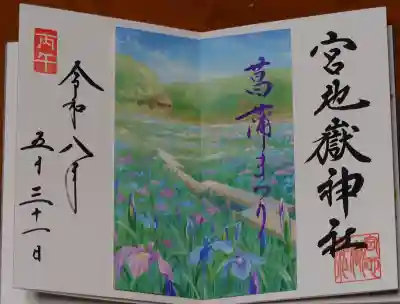 宮地嶽神社
菖蒲まつり
丙午
令和八年
五月三十一日